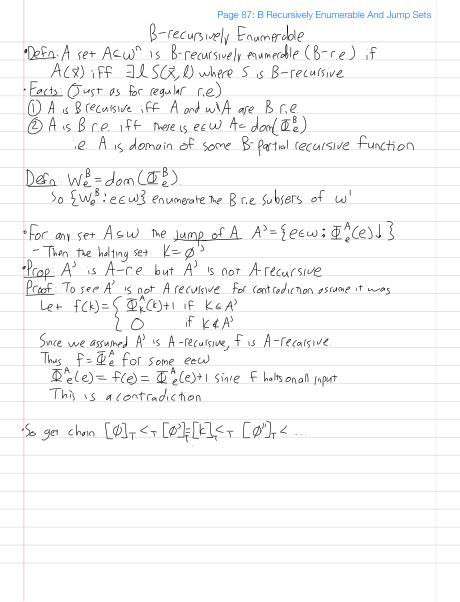 Page 87: B Recursively Enumerable And Jump Sets
B-recursively Enumerable
• Defn: A set A⊆ωⁿ is B-recursively enumerable (B-r.e) if
A(x⃗) iff ∃l S(x⃗,l) where S is B-recursive
• Facts: (Just as for regular r.e)
① A is B recursive iff A and ω\A are B r.e
② A is B r.e. iff there is e∈ω A=dom(Φₑᴮ)
i.e A is domain of some B-partial recursive function
Defn: Wₑᴮ = dom(Φₑᴮ)
So {Wₑᴮ : e∈ω} enumerate the B r.e subsets of ω'
• For any set A⊆ω the jump of A A' = {e∈ω : Φₑᴬ(e)↓}
- Then the halting set K = ∅'
• Prop: A' is A-r.e but A' is not A-recursive
Proof: To see A' is not A recursive for contradiction assume it was
Let f(k) = { Φₖᴬ(k)+1 if k∈A'
0 if k∉A'
Since we assumed A' is A-recursive, f is A-recursive
Thus f = Φₑᴬ for some e∈ω
Φₑᴬ(e) = f(e) = Φₑᴬ(e)+1 since f halts on all input
This is a contradiction
• So get chain [∅]_T <_T [∅']_T = [K]_T <_T [∅'']_T < ...